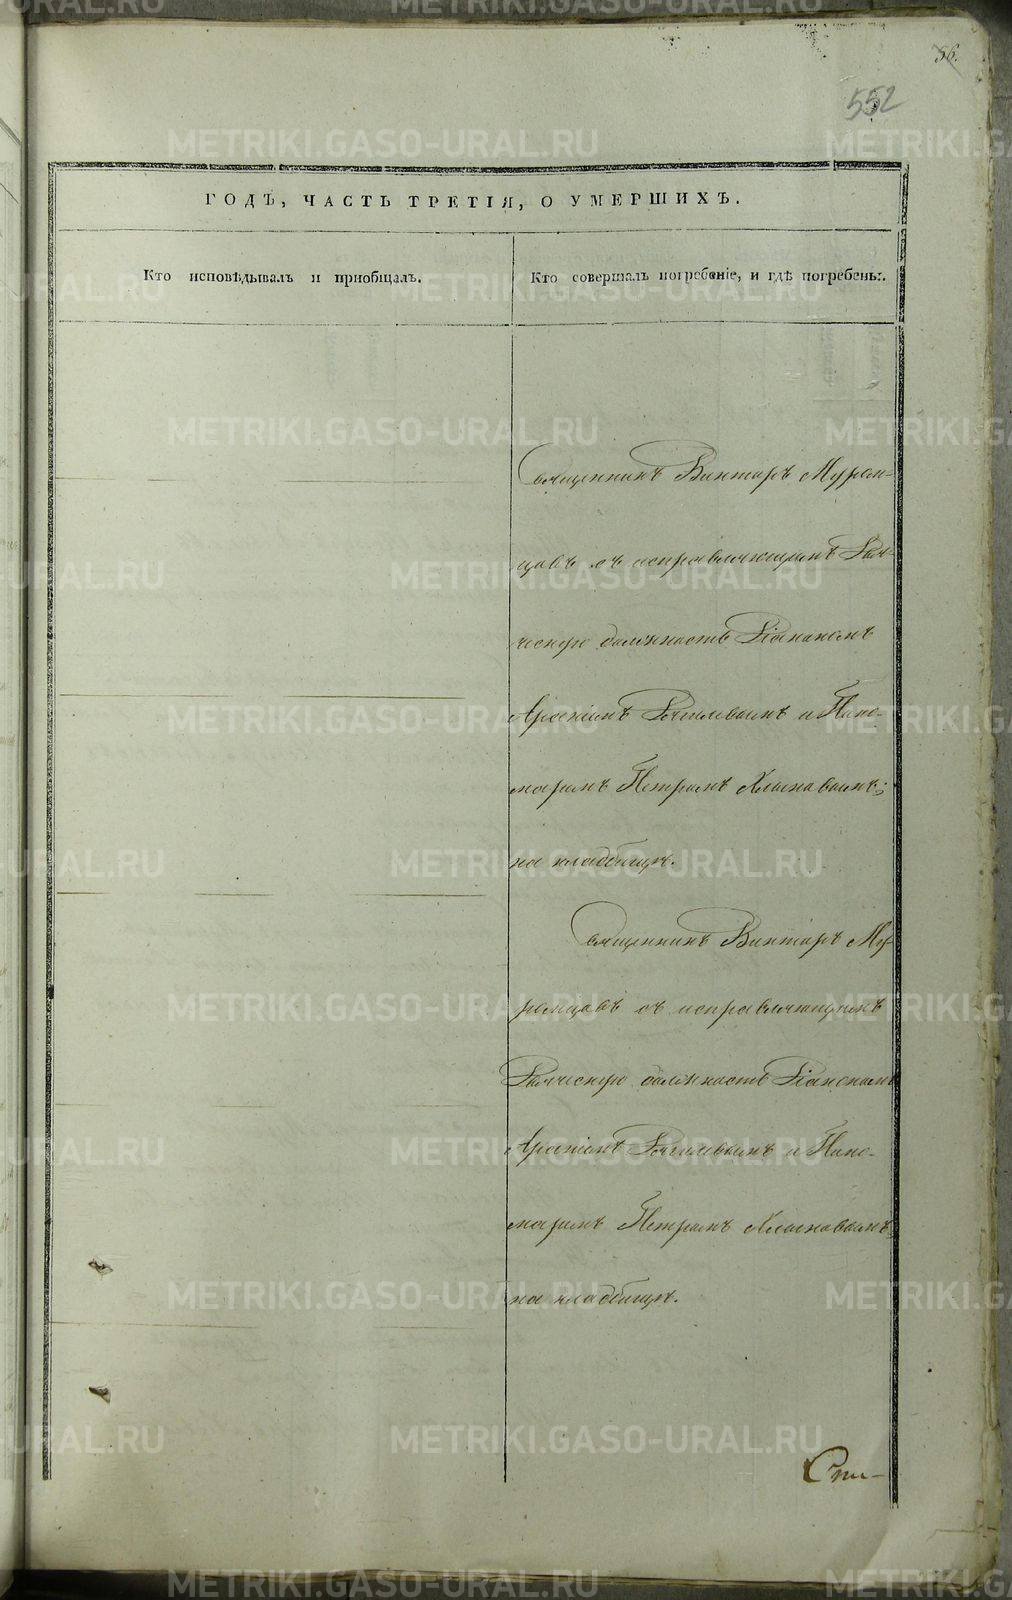 56.
552
ГОДЪ, ЧАСТЬ ТРЕТІЯ, О УМЕРШИХЪ.
Кто исповѣдывалъ и пріобщалъ.
Кто совершалъ погребеніе, и гдѣ погребены.
Священникъ Викторъ Муром-
цовъ съ исправляющимъ Дья-
ческую должность Діакономъ
Арсеніемъ и Поно-
маремъ Петромъ Хлыновымъ;
на кладбищѣ.
Священникъ Викторъ Му-
ромцовъ съ исправляющимъ
Дьяческую должность Діакономъ
Арсеніемъ и Поно-
маремъ Петромъ Хлыновымъ
на кладбищѣ.
METRIKI.GASO-URAL.RU